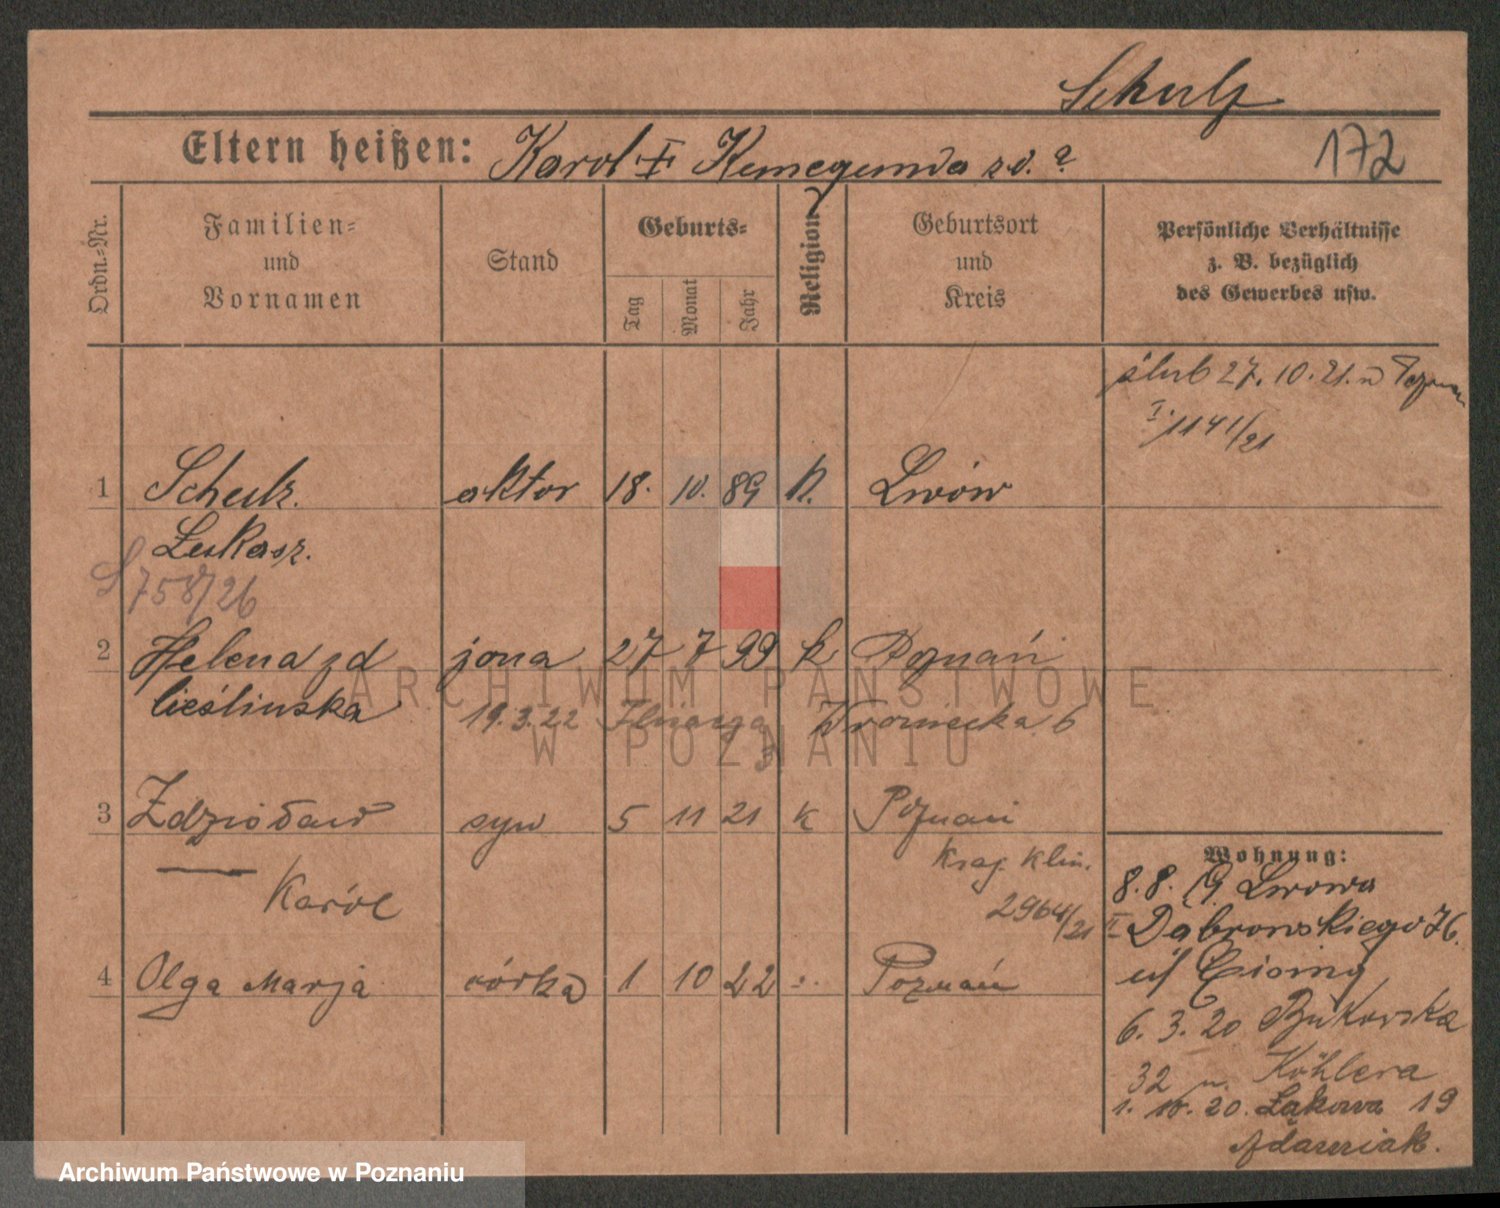 Schulz
Eltern heißen: Karol † Kunegunda z d. ?
172
Ordn.-Nr.
Familien-
und
Vornamen
Stand
Geburts-
Tag
Monat
Jahr
Religion
Geburtsort
und
Kreis
Persönliche Verhältnisse
z. B. bezüglich
des Gewerbes usw.
ślub 27. 10. 21. w Poznan
1141/21
1 Schulz. aktor 18. 10. 89 k. Lwów
Lukasz.
758/26
2 Helena z d żona 27 7 99 k Poznań
Cieślinska
19.3.22 Wroniecka 6
3 Zdzisław syn 5 11 21 k Poznań
Karól
Kraj. Klin.
2964/21
4 Olga Marja córka 1 10 22 Poznań
Wohnung:
8. 8. 19 Lwowa
II Dąbrowskiego 76.
6. 3. 20 Bukowska
32 u. Köhlera
1. 10. 20. Łąkowa 19
Adamiak.
ARCHIWUM PAŃSTWOWE
W POZNANIU
Archiwum Państwowe w Poznaniu